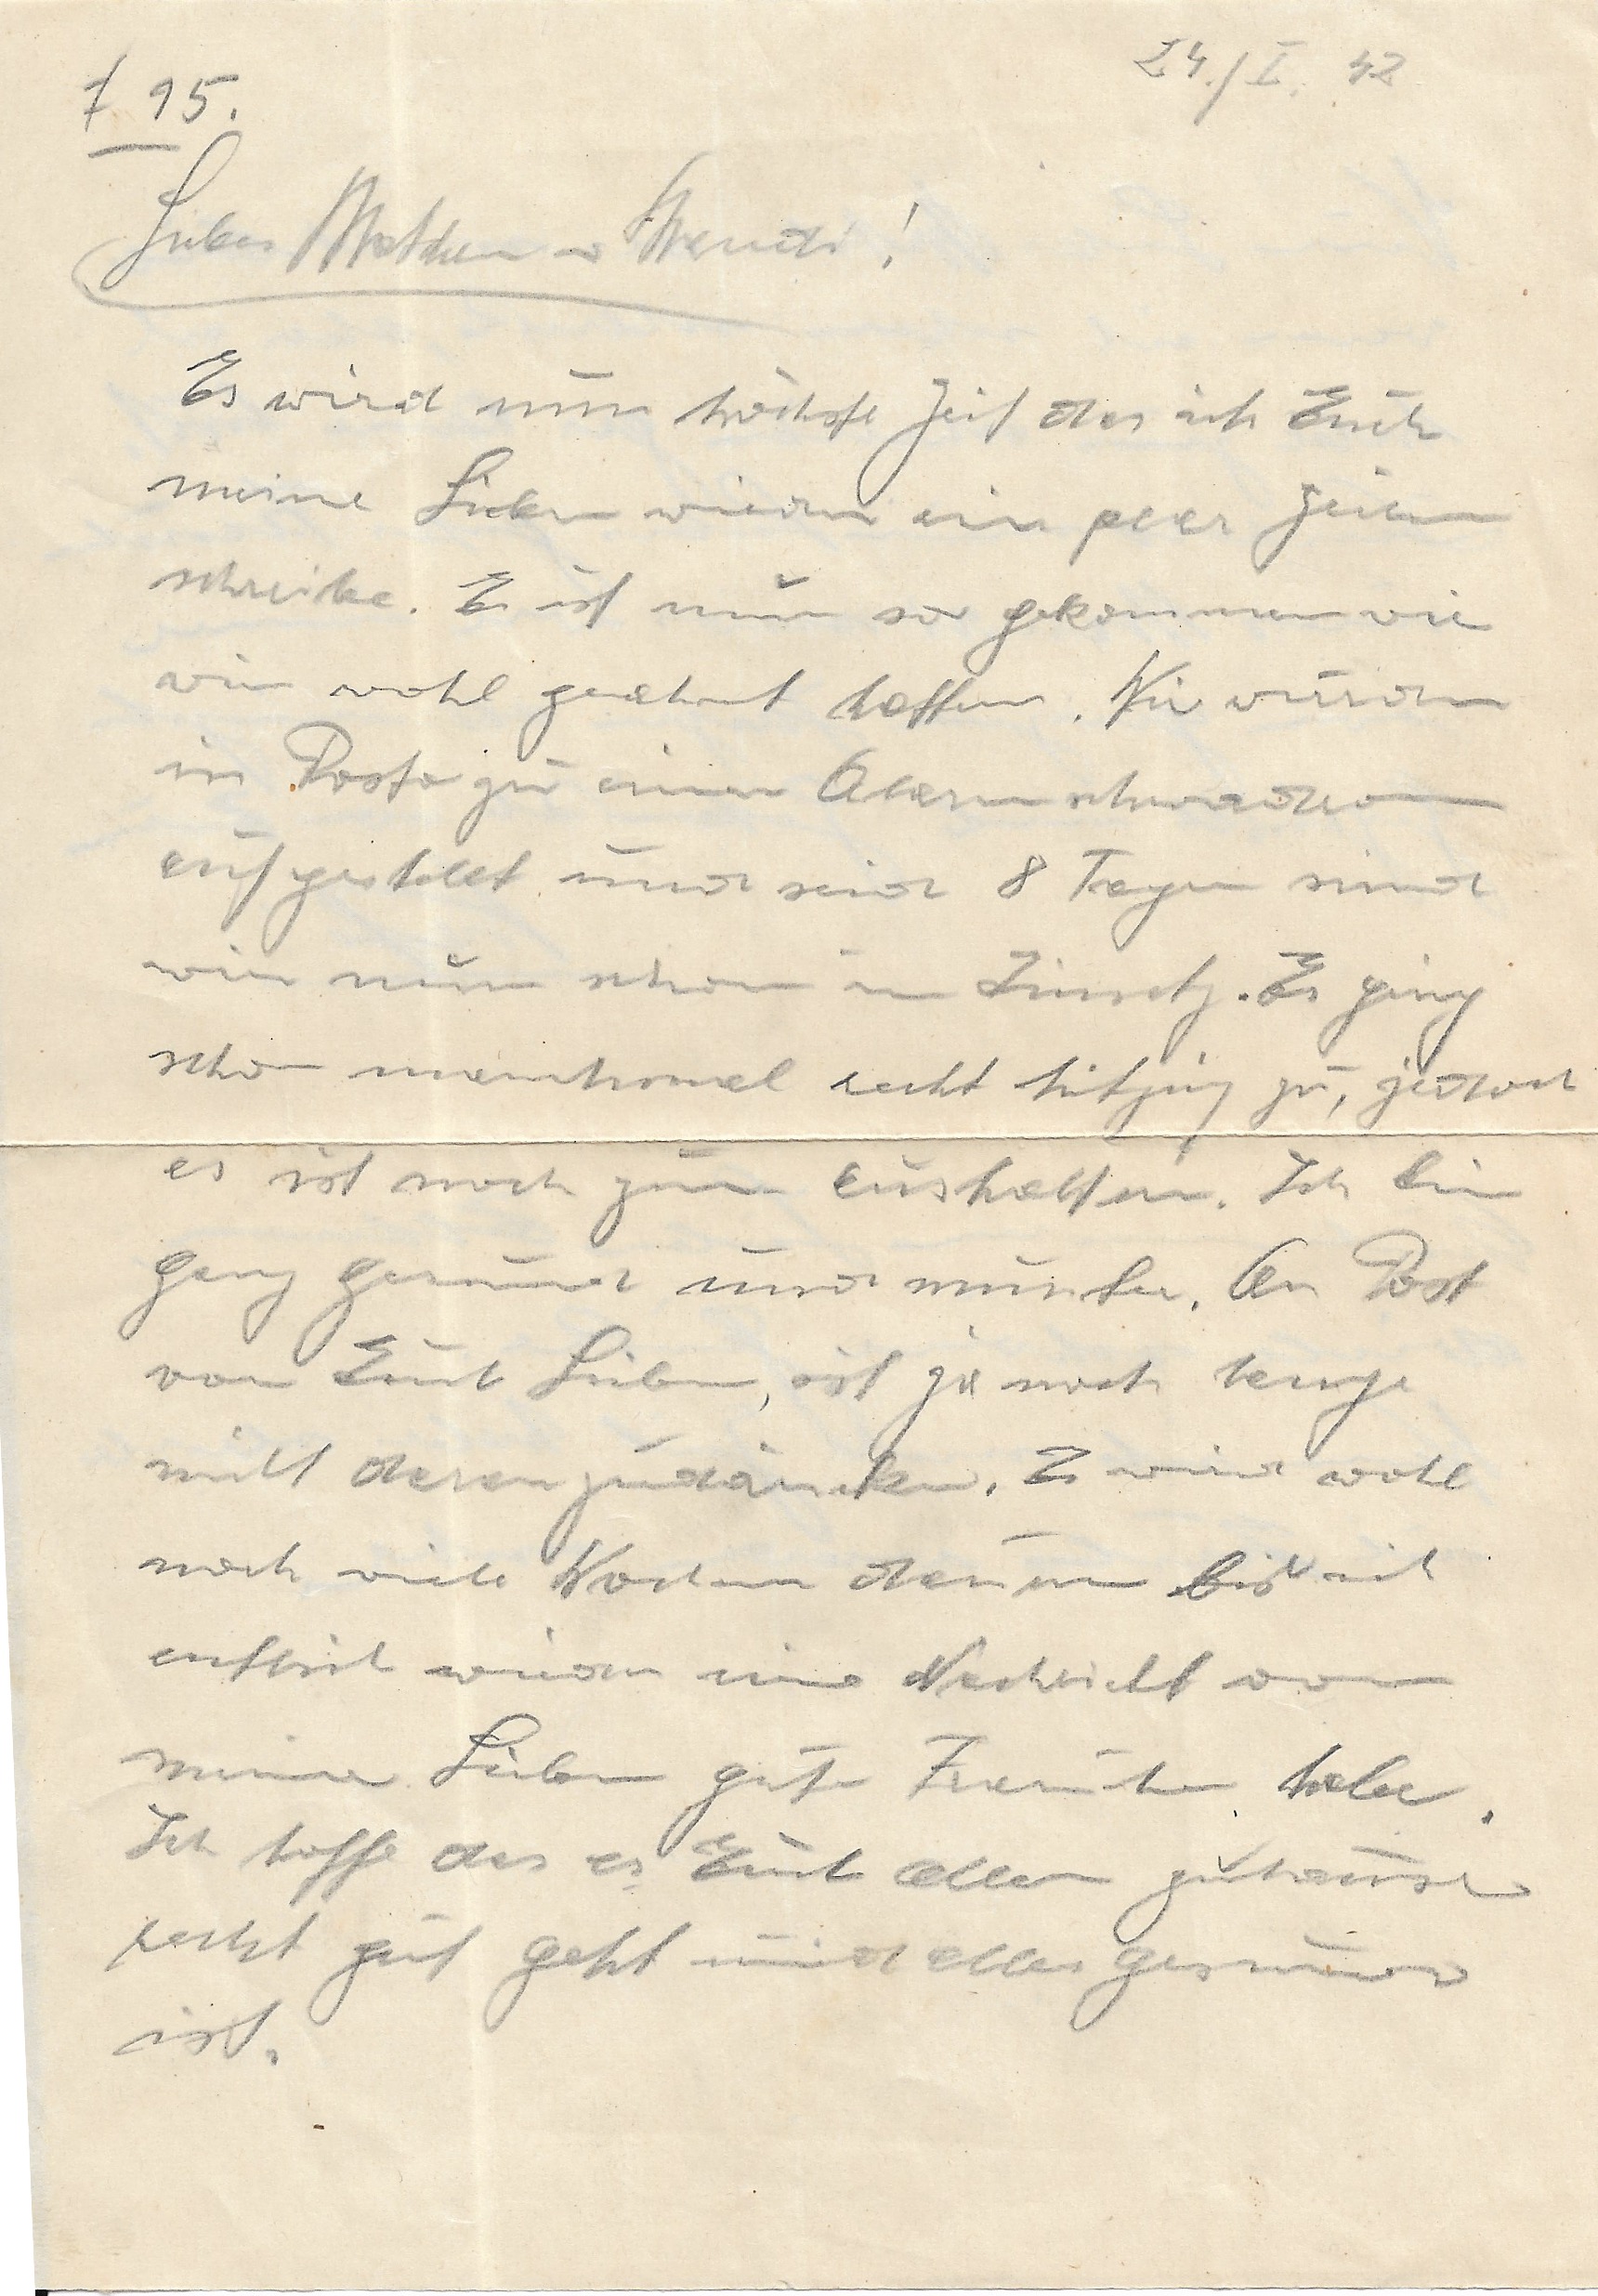 7. 95.
24./I. 42
Liebes Mutchen u Strendi!
Es wird nun höchste Zeit das ich Euch
meine Lieben wieder ein paar Zeilen
schreibe. Es ist nun so gekommen wie
wir wohl geahnt hatten. Wir wurden
in Posta zu einer Alarmschwadron
aufgestellt und seid 8 Tagen sind
wir nun schon im Einsatz. Es ging
schon manchmal recht hitzig zu, jedoch
es ist noch zum aushalten. Ich bin
ganz gesund und munter. An Post
von Euch Lieben, ist ja noch lange
nicht daran zu däncken. Es wird wohl
noch viele Wochen dauern bis ich
entlich wieder eine Nachricht von
meine Lieben gute Frauchen habe.
Ich hoffe das es Euch allen zuhause
recht gut geht und alles gesund
ist.